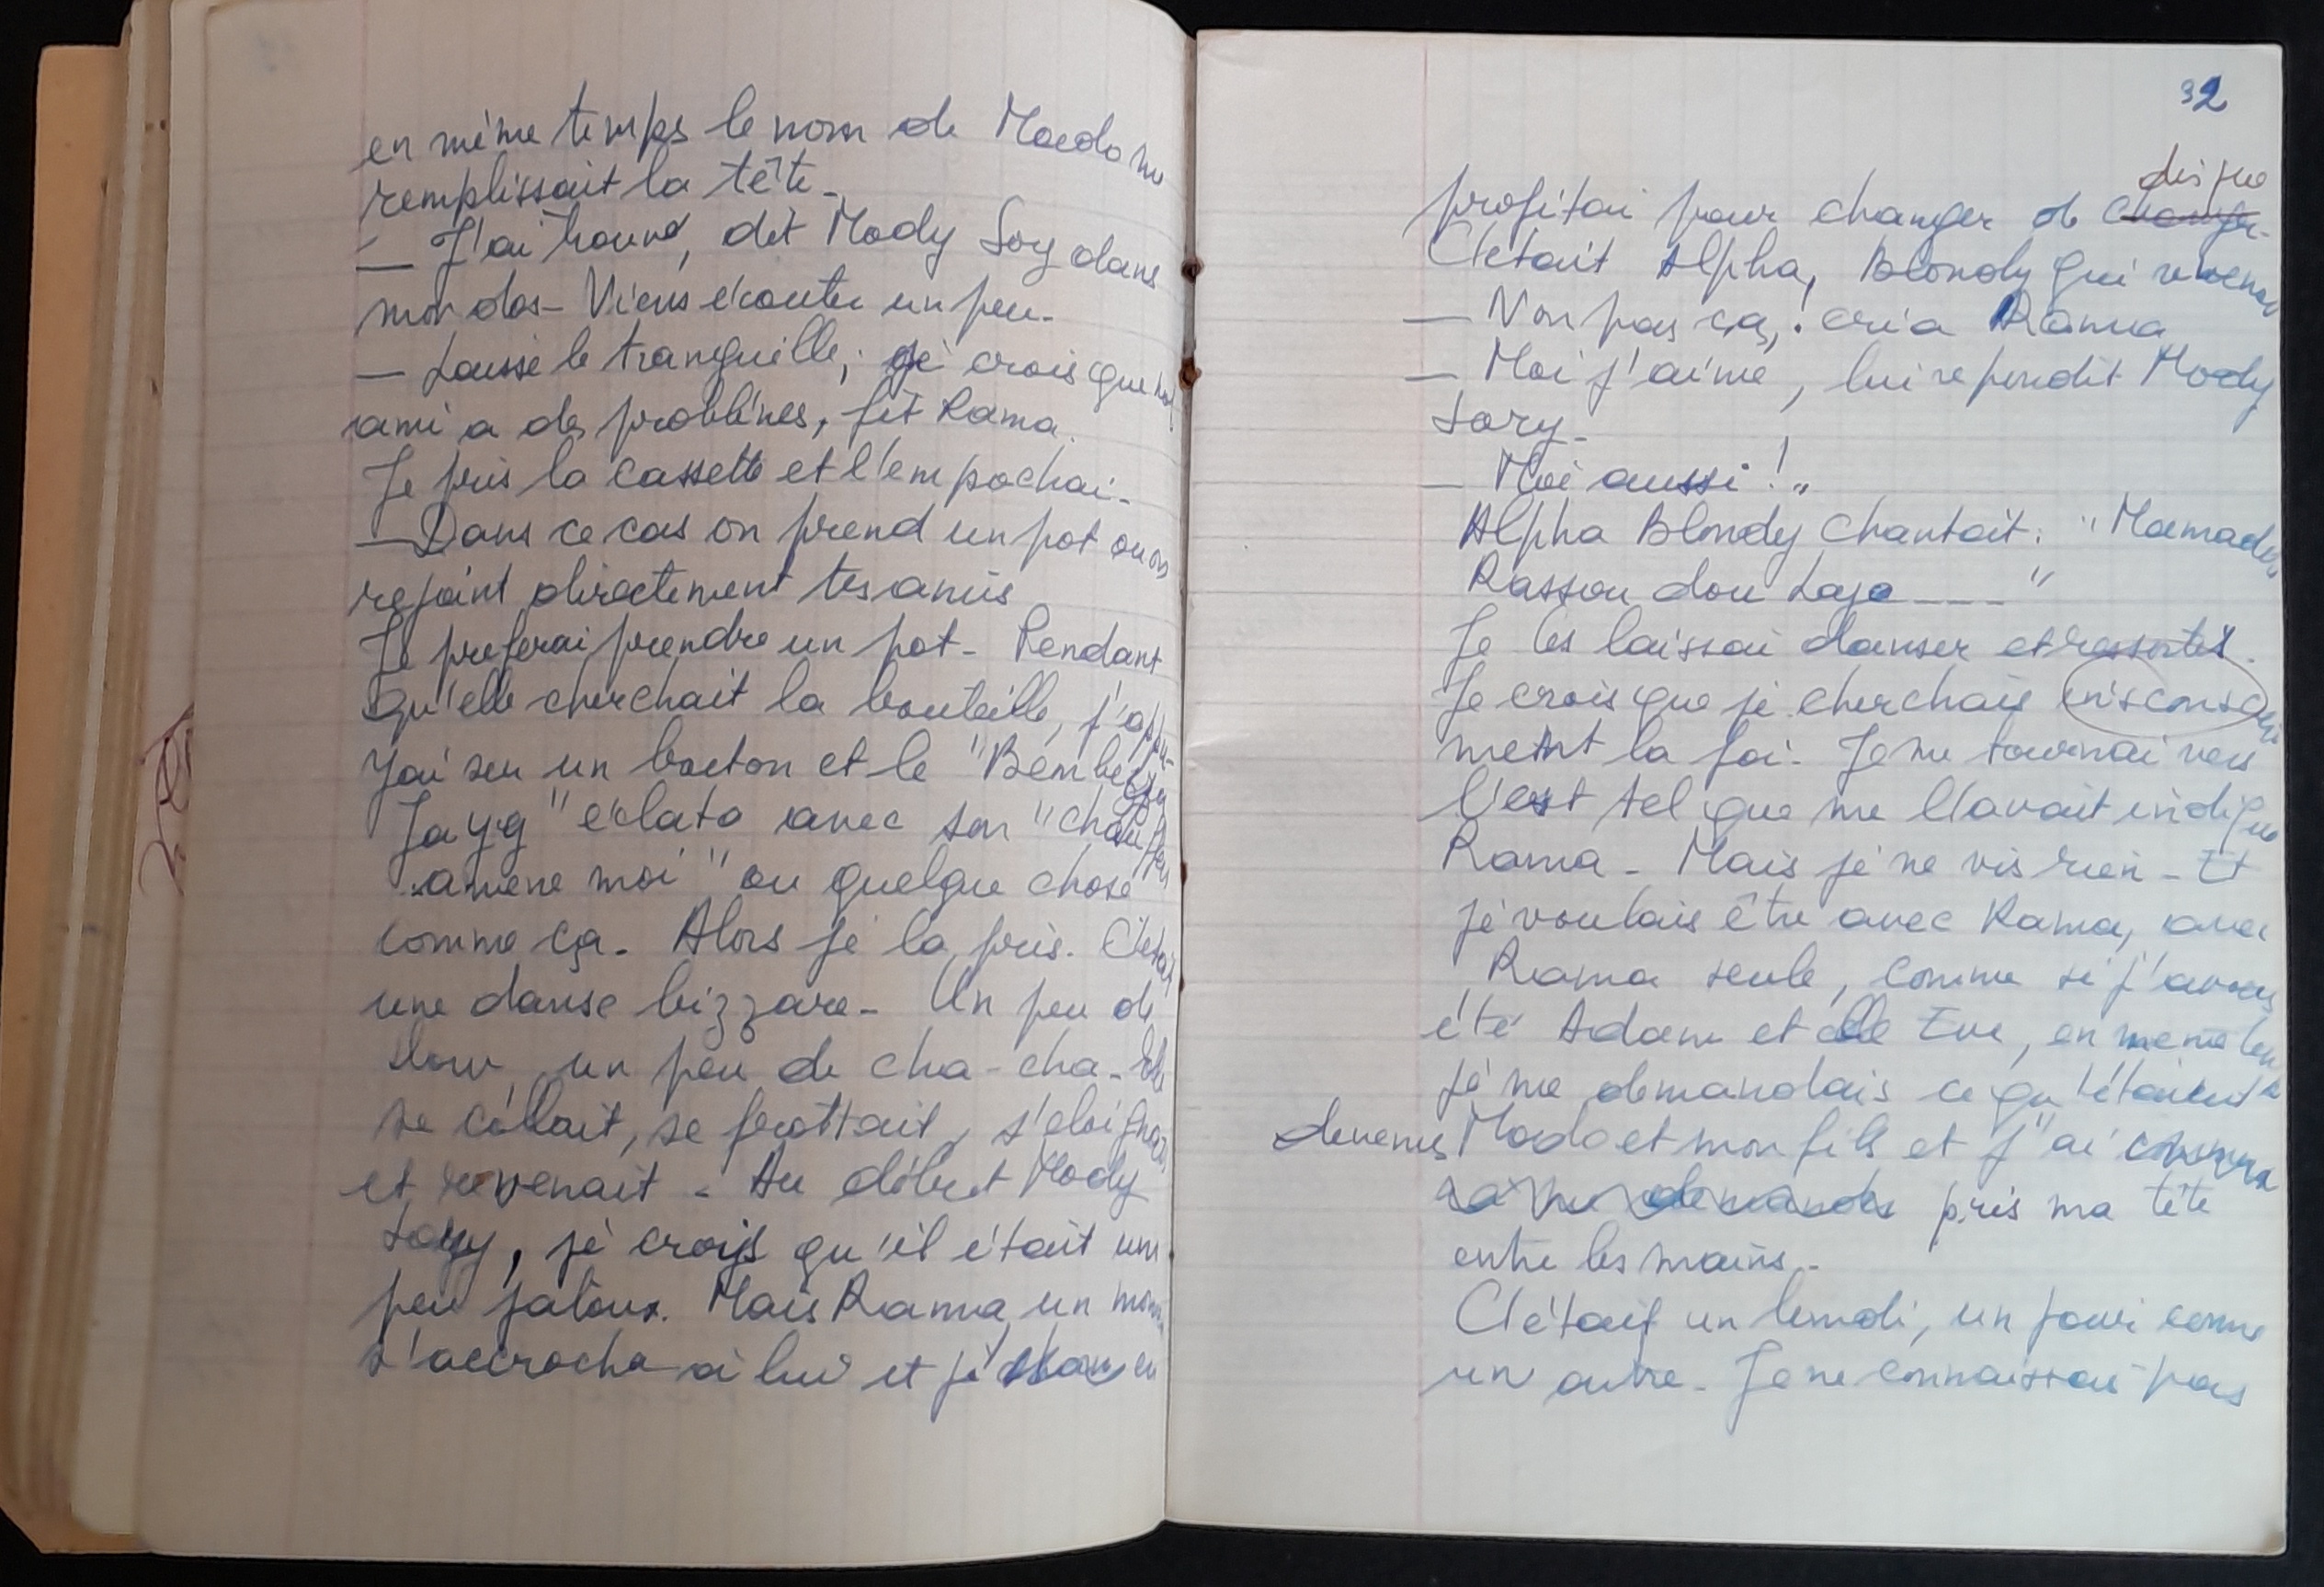 en même temps le nom de Mado me
remplissait la tête -
— J'ai trouvé, dit Mody Sory dans
mon dos - Viens écouter un peu -
— Laisse le tranquille, je crois que
ami a des problèmes, fit Rama.
Je pris la cassette et l'empochai -
— Dans ce cas on prend un pot ou on
rejoint directement tes amis
Je preferai prendre un pot - Pendant
qu'elle cherchait la bouteille, j'appu-
yai sur un bouton et le "Bembeya
Jazz" éclata avec son "chauffeur
amene moi" ou quelque chose
comme ça. Alors je la pris. C'était
une danse bizzare - Un peu de
slow, un peu de cha-cha - Elle
se collait, se frottait, s'eloignait
et revenait - Au début Mody
Sory, je crois qu'il était un
peu jaloux. Mais Rama un
s'accrocha à lui et j'en
32
disque
profitai pour changer de
C'était Alpha, Blondy qui revenait
— Non pas ça, ! cria Rama
— Moi j'aime, lui repondit Mody
Sory -
— Moi aussi ! "
Alpha Blondy chantait : "Mamadou
Rassou dou Laye ---- "
Je les laissai danser et ressortis.
Je crois que je cherchais
ment la foi. Je me tournai vers
l'est tel que me l'avait indiqué
Rama - Mais je ne vis rien - Et
je voulais être avec Rama, avec
Rama seule, comme si j'avais
été Adam et elle Eve, en meme temps
je me demandais ce qu'étaient
devenus Mado et mon fils et j'ai
pris ma tête
entre les mains -
C'était un lundi, un jour comme
un autre - Je ne connaissais pas